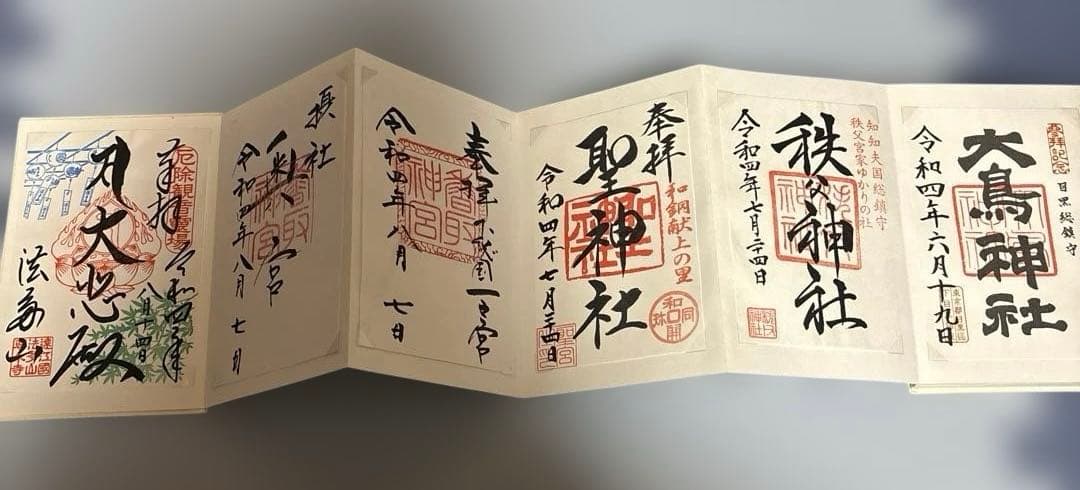 登拝記念
目黒総鎮守
大鳥神社
令和四年六月十九日
知知夫国総鎮守
秩父宮家ゆかりの社
秩父神社
令和四年七月二四日
奉拝
和銅献上の里
聖神社
和同開珎
令和四年七月二十四日
奉拝
常陸国一之宮
鹿取神宮
令和四年八月七日
摂社
奥宮
令和四年八月七日
奉拝
厄除観音霊場
令和四年
八月十四日
大悲殿
法多山